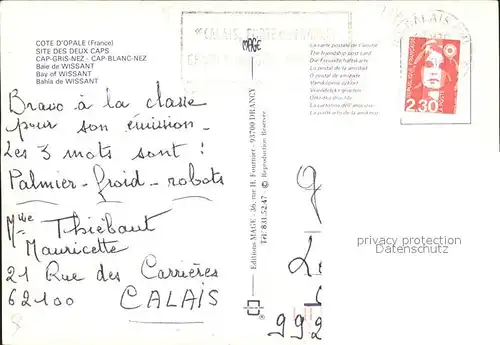 COTE D'OPALE (France)
SITE DES DEUX CAPS
CAP-GRIS-NEZ - CAP-BLANC-NEZ
Baie de WISSANT
Bay of WISSANT
Bahia de WISSANT
"CALAIS, PORTE
MAGE
CALAIS
La carte postale de l'amitié
The friendship post card
Die Freundschaftskarte
La postal de la amistad
O postal da amizade
RÉPUBLIQUE FRANÇAISE
2,30
Bravo à la classe
pour son émission.
Les 3 mots sont :
Palmier - froid - robots
Mlle Thiébaut
Mauricette
21 Rue des Carrières
62100 CALAIS
Editions MAGE - 36, rue H. Fournier - 93700 DRANCY
Tél: 831.52.47 © Reproduction Réservée
992
privacy protection
Datenschutz